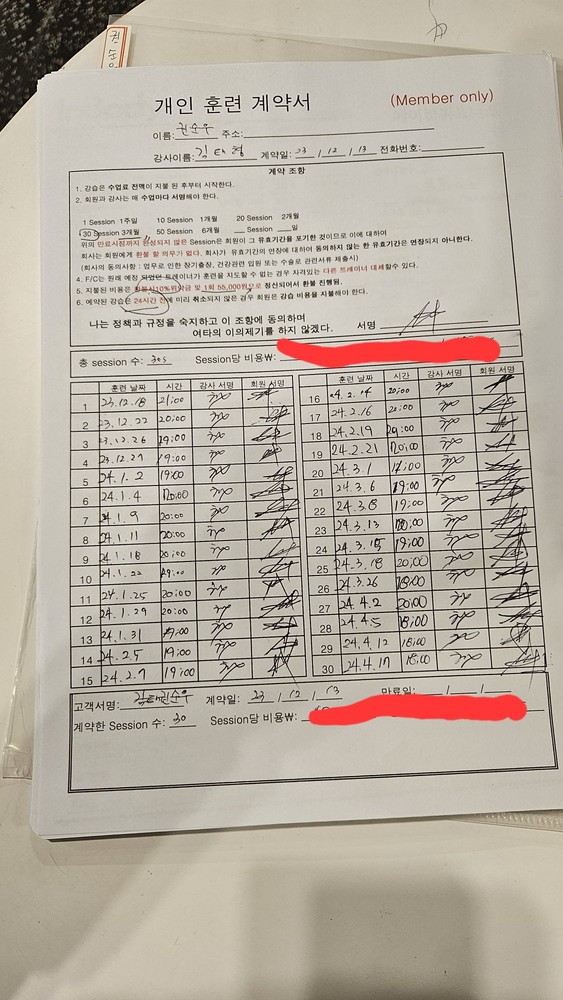 권순우
개인 훈련 계약서 (Member only)
이름: 권순우 주소:
강사이름: 김태형 계약일: 23 / 12 / 13 전화번호:
계약 조항
1. 강습은 수업료 전액이 지불 된 후부터 시작한다.
2. 회원과 강사는 매 수업마다 서명해야 한다.
1 Session 1주일 10 Session 1개월 20 Session 2개월
30 Session 3개월 50 Session 6개월 __ Session __일
위의 만료시점까지 완성되지 않은 Session은 회원이 그 유효기간을 포기한 것이므로 이에 대하여
회사는 회원에게 환불 할 의무가 없다. 회사가 유효기간의 연장에 대하여 동의하지 않는 한 유효기간은 연장되지 아니한다.
(회사의 동의사항 : 업무로 인한 장기출장, 건강관련 입원 또는 수술로 관련서류 제출시)
4. F/C는 원래 예정 되었던 트레이너가 훈련을 지도할 수 없는 경우 자격있는 다른 트레이너 대체할수 있다.
5. 지불된 비용은 환불시10%위약금 및 1회 55,000원으로 정산되어서 환불 진행됨.
6. 예약된 강습은 24시간 전에 미리 취소되지 않은 경우 회원은 강습 비용을 지불해야 한다.
나는 정책과 규정을 숙지하고 이 조항에 동의하며
여타의 이의제기를 하지 않겠다. 서명
총 session 수: 30s Session당 비용₩:
훈련 날짜 시간 강사 서명 회원 서명
1 23.12.18 21:00
2 23.12.22 20:00
3 23.12.26 19:00
4 23.12.27 19:00
5 24.1.2 19:00
6 24.1.4 20:00
7 24.1.9 20:00
8 24.1.11 20:00
9 24.1.18 20:00
10 24.1.22 19:00
11 24.1.25 20:00
12 24.1.29 20:00
13 24.1.31 19:00
14 24.2.5 19:00
15 24.2.7 19:00
훈련 날짜 시간 강사 서명 회원 서명
16 24.2.14 20:00
17 24.2.16 20:00
18 24.2.19 20:00
19 24.2.21 20:00
20 24.3.1 17:00
21 24.3.6 19:00
22 24.3.8 19:00
23 24.3.13 20:00
24 24.3.15 19:00
25 24.3.18 20:00
26 24.3.26 18:00
27 24.4.2 20:00
28 24.4.5 18:00
29 24.4.12 18:00
30 24.4.17 18:00
고객서명: 권순우 계약일: 23 / 12 / 13 만료일: / /
계약한 Session 수: 30 Session당 비용₩: